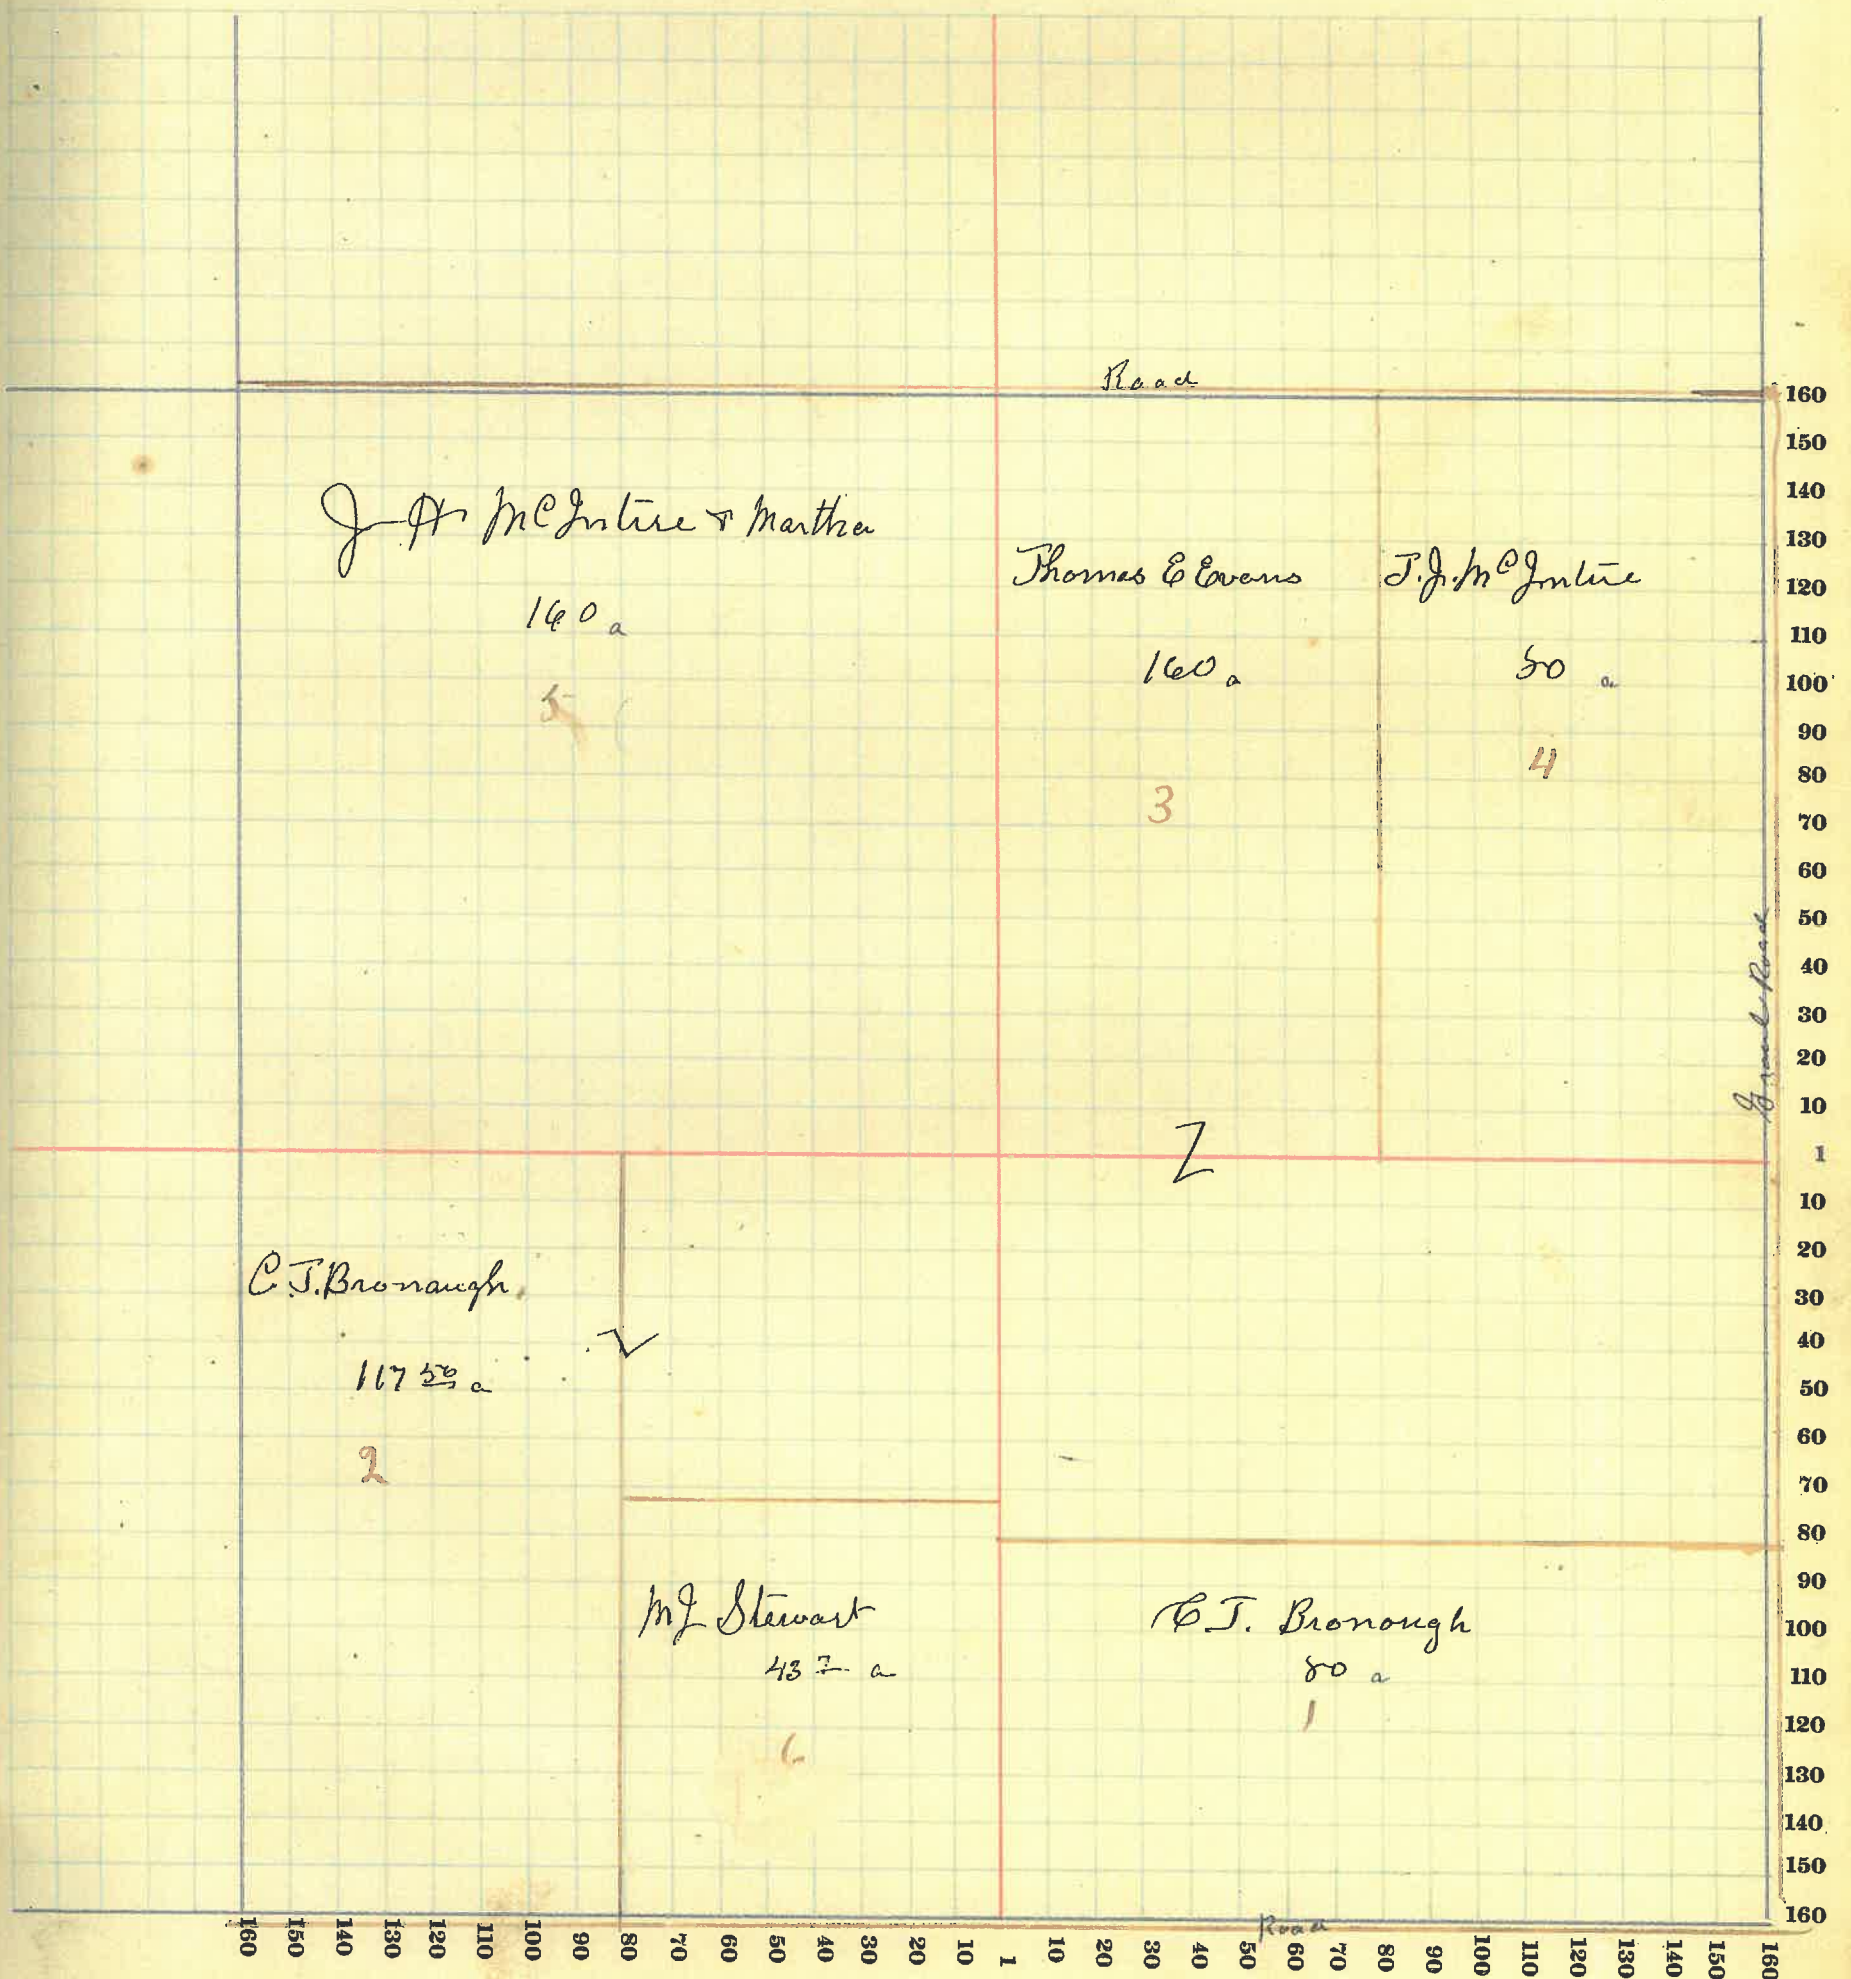 Road
J H McIntire & Martha
160 a
5
Thomas E Evans
160 a
3
T. J. McIntire
80 a
4
Gravel Road
C. T. Bronaugh
117 50 a
2
M J Stewart
a
6
C T. Bronough
80 a
1
Road
160
150
140
130
120
110
100
90
80
70
60
50
40
30
20
10
1
10
20
30
40
50
60
70
80
90
100
110
120
130
140
150
160
160 150 140 130 120 110 100 90 80 70 60 50 40 30 20 10 1 10 20 30 40 50 60 70 80 90 100 110 120 130 140 150 160